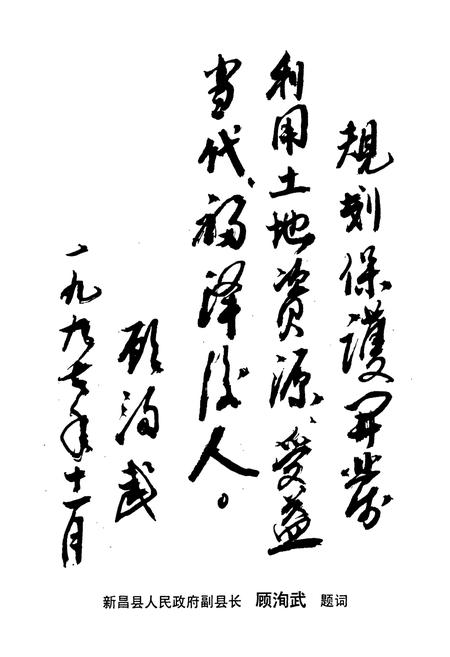 規劃保護開發
利用土地資源、受益
当代、福泽後人。
顾洵武
一九九七年十一月
新昌县人民政府副县长 顾洵武 题词